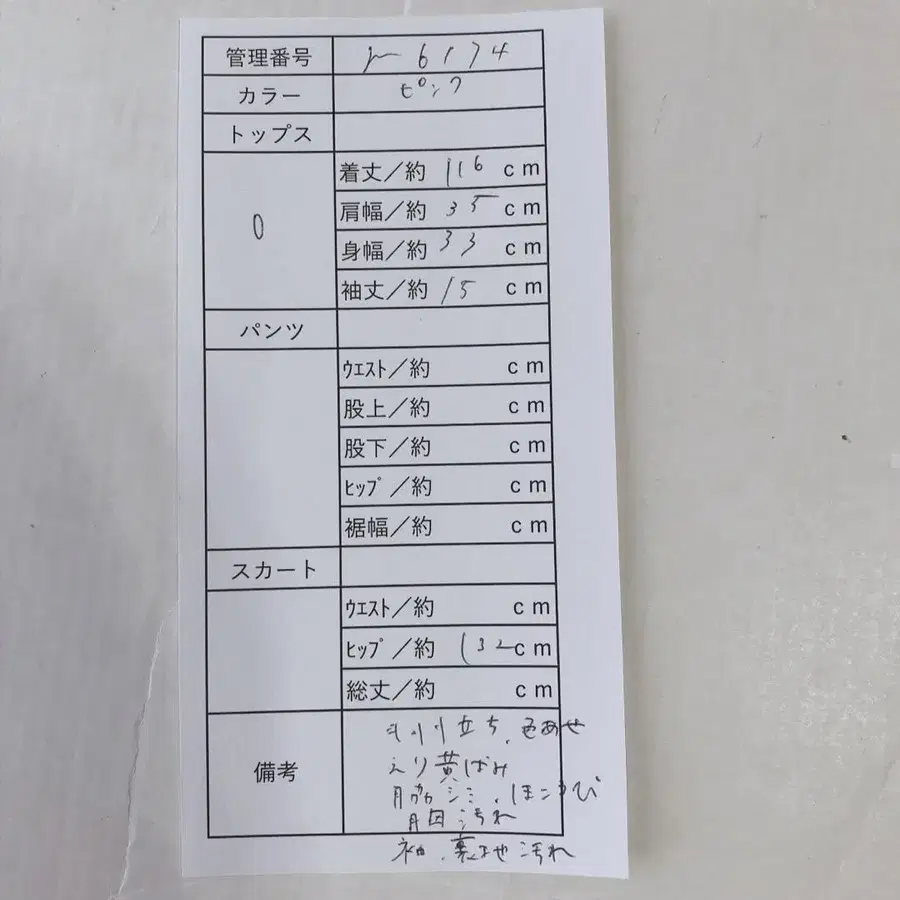 管理番号 6174
カラー ピンク
トップス
0
着丈／約 116 cm
肩幅／約 35 cm
身幅／約 33 cm
袖丈／約 15 cm
パンツ
ｳｴｽﾄ／約 cm
股上／約 cm
股下／約 cm
ﾋｯﾌﾟ／約 cm
裾幅／約 cm
スカート
ｳｴｽﾄ／約 cm
ﾋｯﾌﾟ／約 132cm
総丈／約 cm
備考
毛羽立ち、色あせ
えり黄ばみ
脇シミ、ほころび
胸汚れ
袖、裏地汚れ